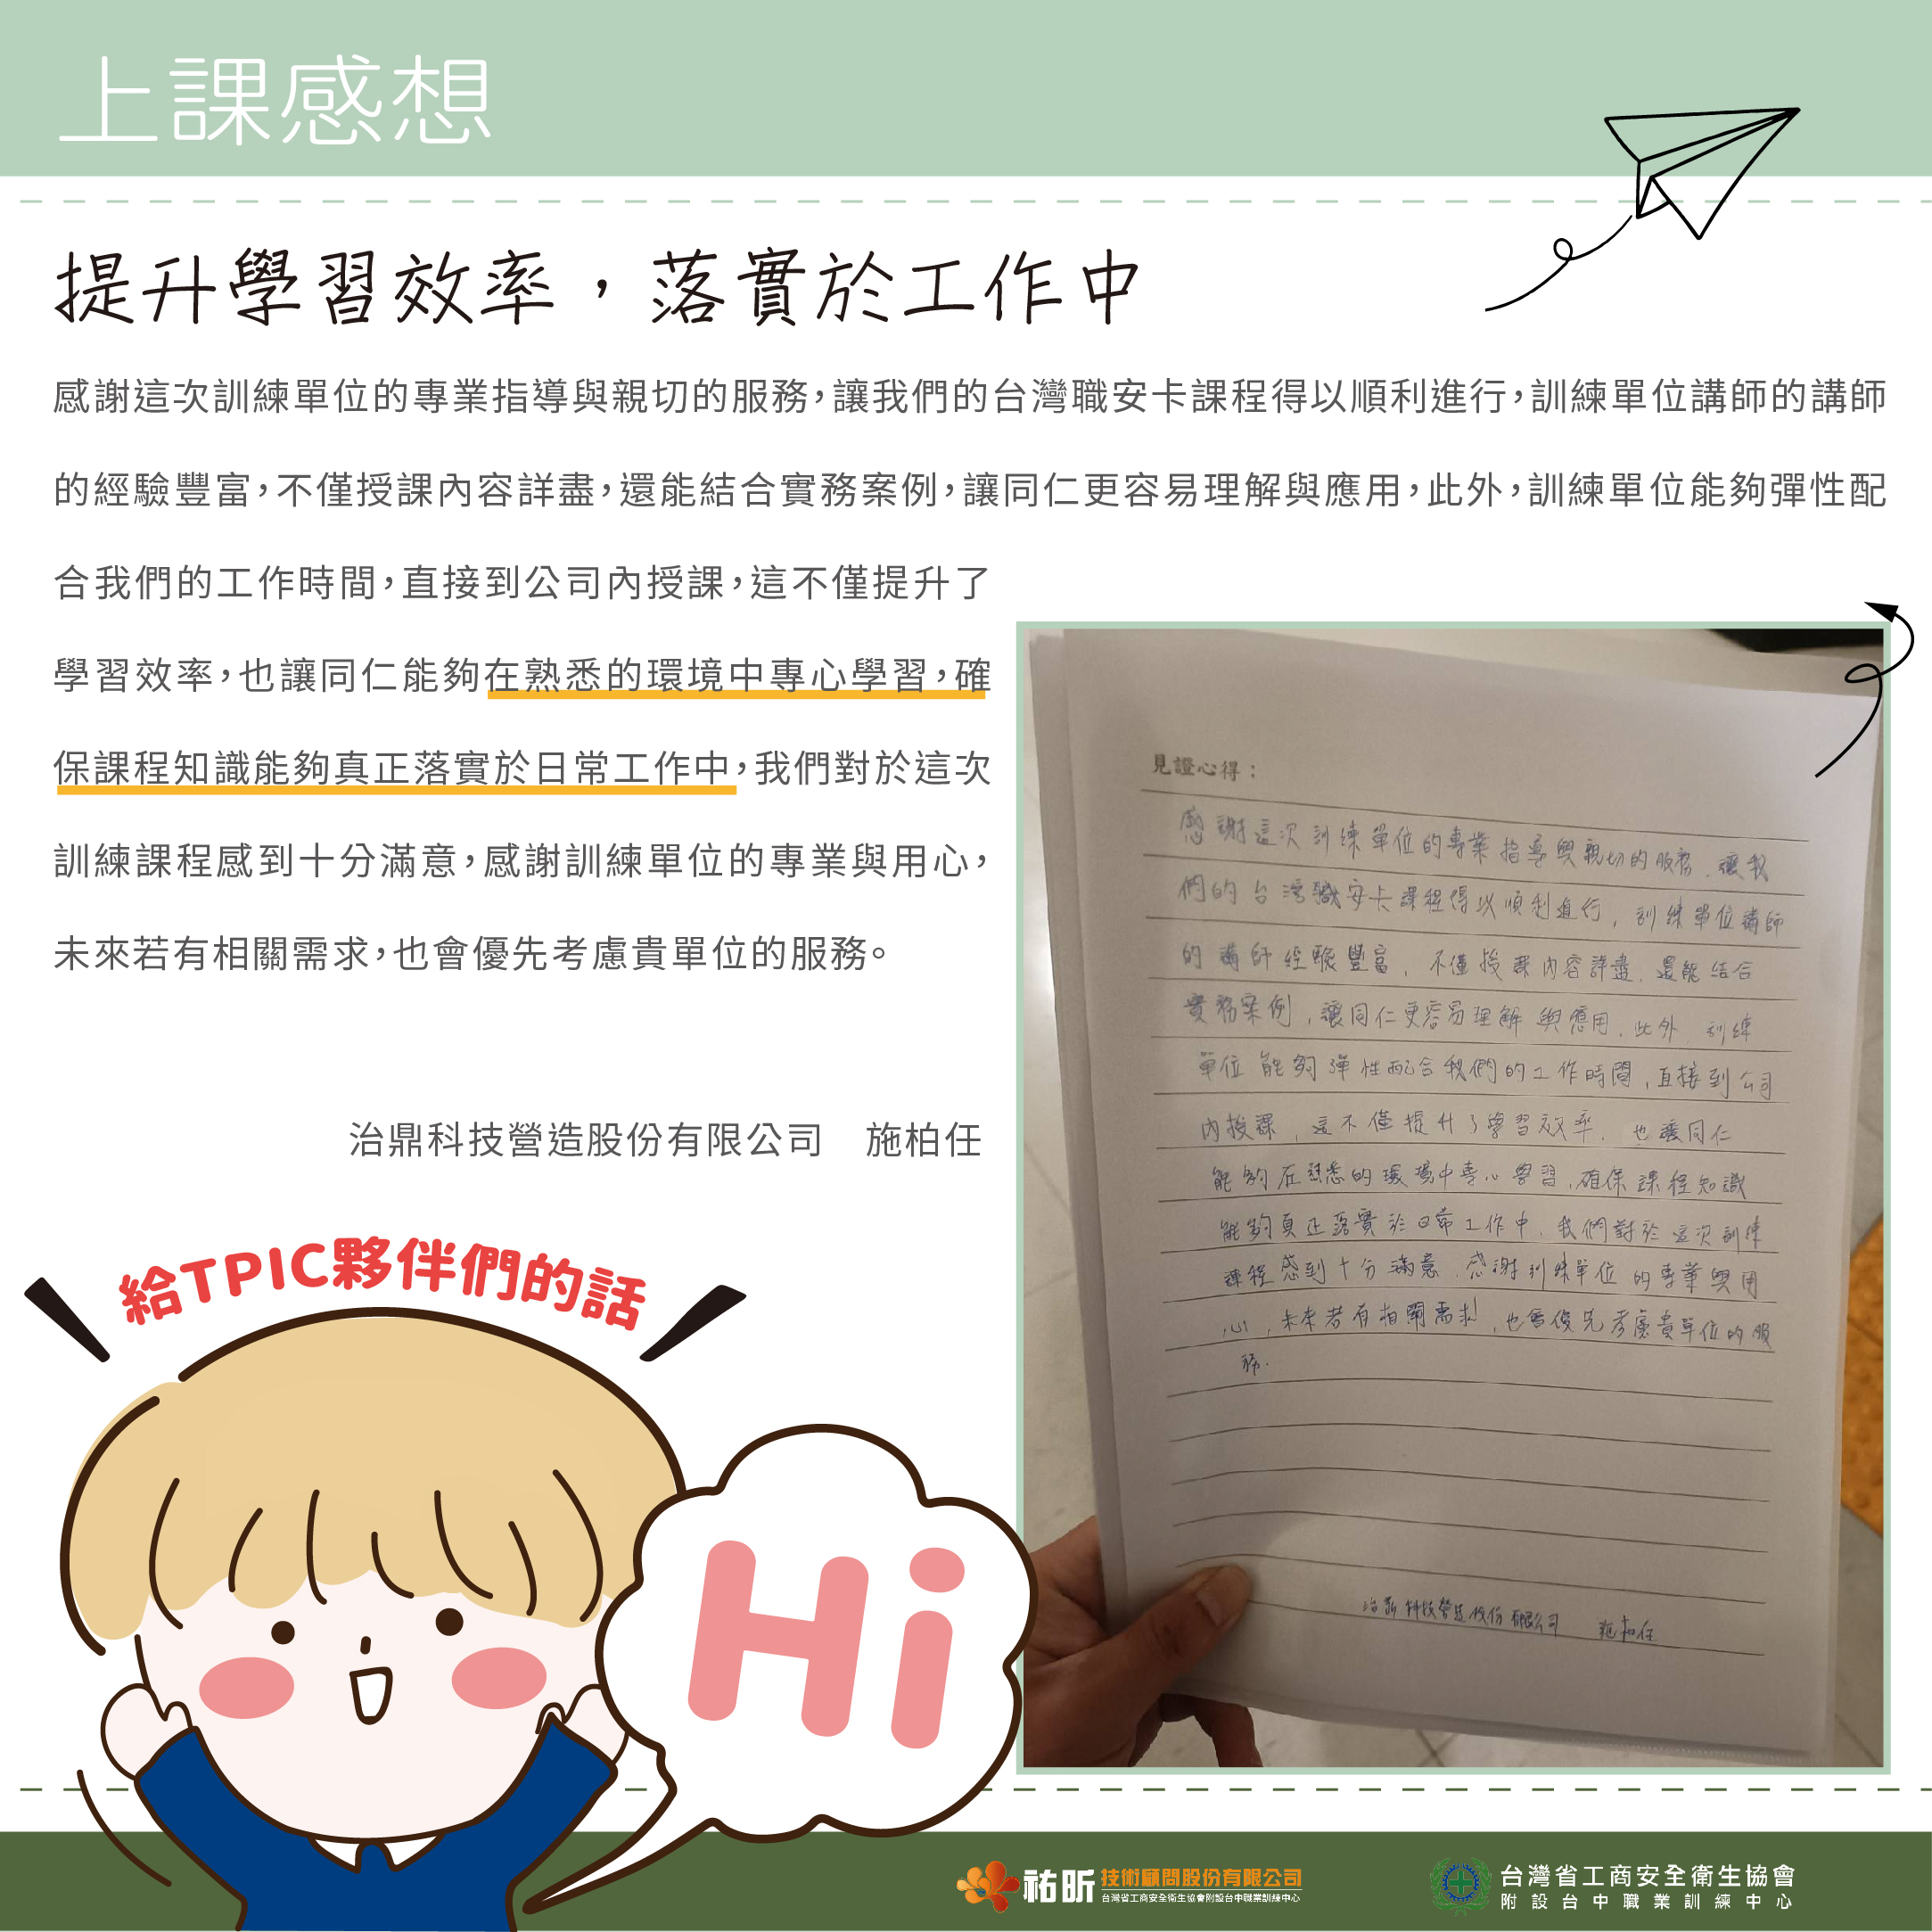 上課感想
提升學習效率，落實於工作中
感謝這次訓練單位的專業指導與親切的服務，讓我們的台灣職安卡課程得以順利進行，訓練單位講師的講師
的經驗豐富，不僅授課內容詳盡，還能結合實務案例，讓同仁更容易理解與應用，此外，訓練單位能夠彈性配
合我們的工作時間，直接到公司內授課，這不僅提升了
學習效率，也讓同仁能夠在熟悉的環境中專心學習，確
保課程知識能夠真正落實於日常工作中，我們對於這次
訓練課程感到十分滿意，感謝訓練單位的專業與用心，
未來若有相關需求，也會優先考慮貴單位的服務。
治鼎科技營造股份有限公司　施柏任
見證心得：
感謝這次訓練單位的專業指導與親切的服務，讓我
們的台灣職安卡課程得以順利進行，訓練單位講師
的講師經驗豐富，不僅授課內容詳盡，還能結合
實務案例，讓同仁更容易理解與應用，此外 訓練
單位能夠彈性配合我們的工作時間，直接到公司
內授課，這不僅提升了學習效率，也讓同仁
能夠在熟悉的環境中專心學習，確保課程知識
能夠真正落實於日常工作中，我們對於這次訓練
課程感到十分滿意，感謝訓練單位的專業與用
心，未來若有相關需求，也會優先考慮貴單位的服
務.
治鼎科技營造股份有限公司　施柏任
給TPIC夥伴們的話
Hi
祐昕 技術顧問股份有限公司
台灣省工商安全衛生協會附設台中職業訓練中心
台灣省工商安全衛生協會
附設台中職業訓練中心